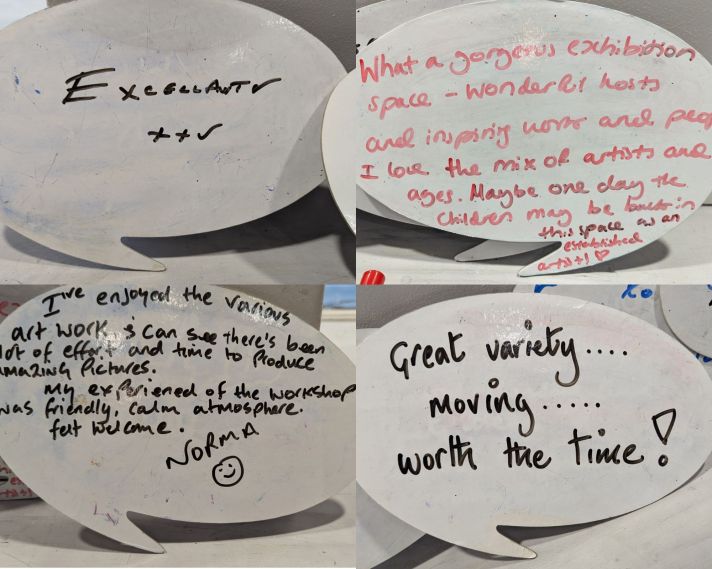 EXCELLANT
xxx
What a gorgeous exhibition
space - wonderful hosts
and inspiring work and peop
I love the mix of artists and
ages. Maybe one day the
children may be back in
this space as an
established
artist! ♡
I've enjoyed the various
art work & can see there's been
lot of effort and time to produce
amazing pictures.
my experiened of the workshop
was friendly, calm atmosphere.
felt welcome.
NORMA
☺
Great variety....
moving.....
worth the time!